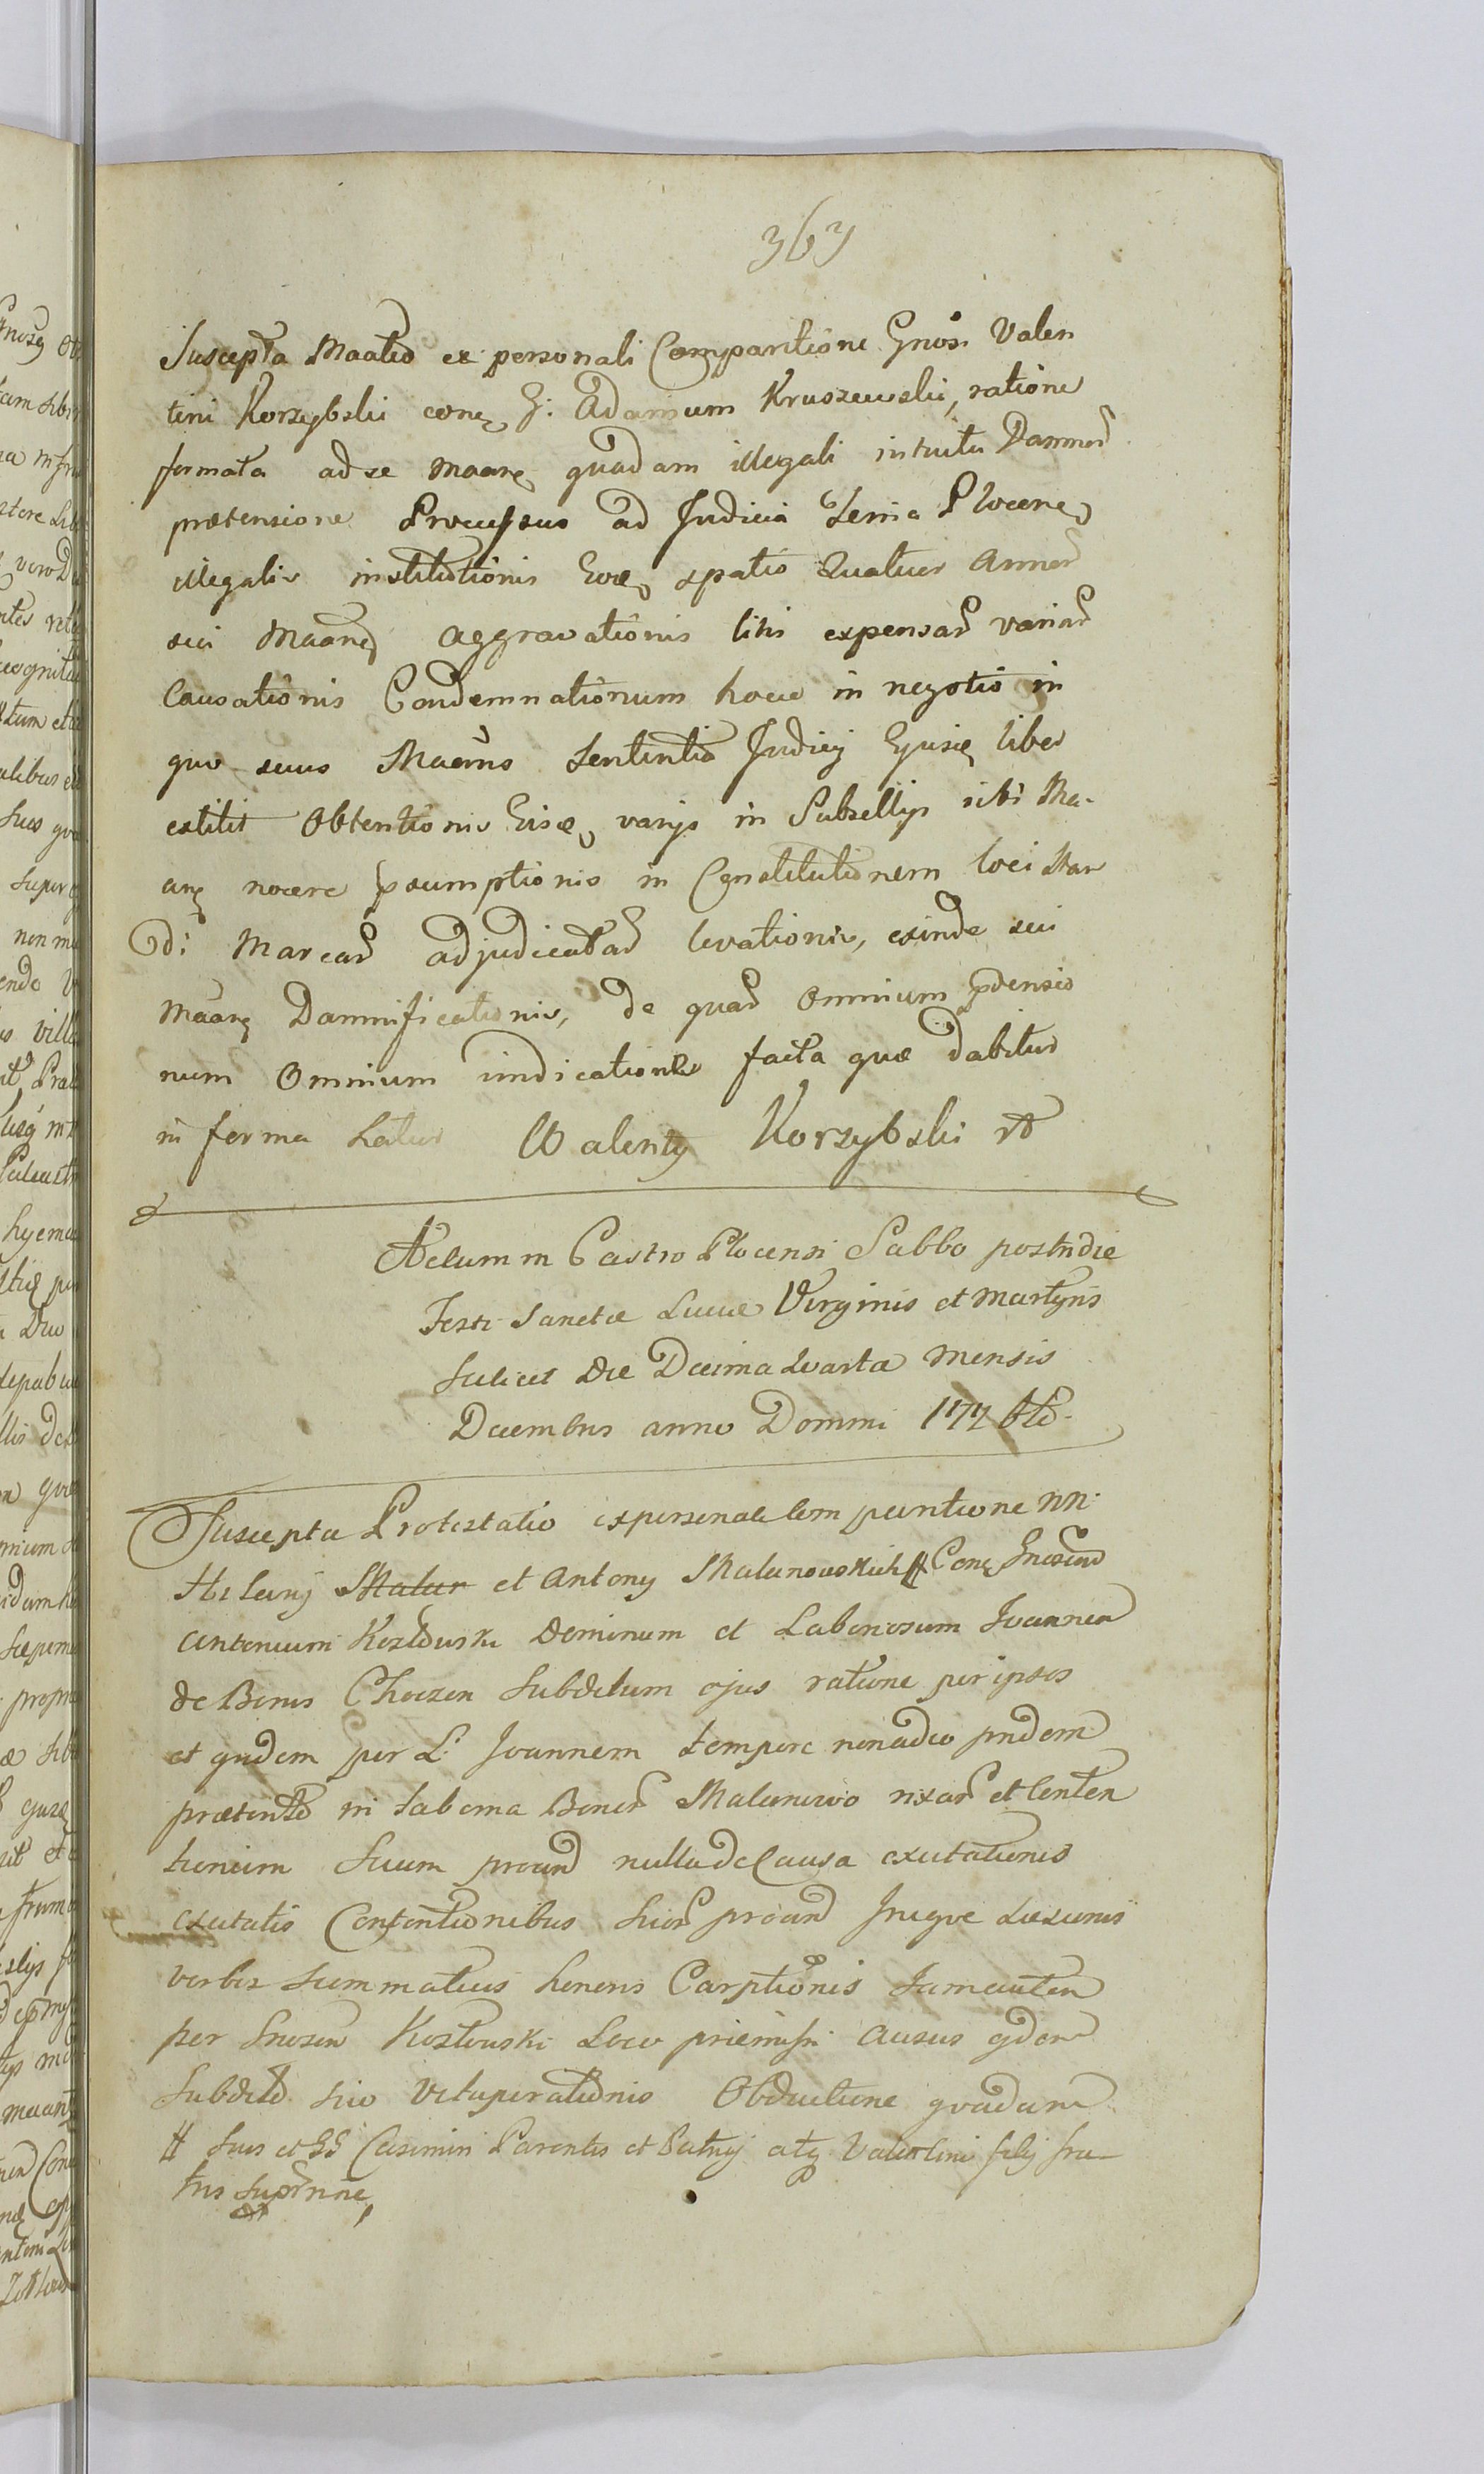 363
Suscepta Maatio ex personali Comparitione Gnosi Valen
tini Korzybski conq G: Adamum Kruszewski, ratione
formata ad se Maanq quadam illegali intuitu Damnor
prætensione Processus ad Judicia Terria Plocen
illegalis institutionis Eoq spatio Quatuor Annor
sui Maanq aggravationis litis expensar variar
Causationis Condemnationum hocce in negotio in
quo suus Maans Sententia Judicij Ejusq liber
extitit Obtentionis Eisq varijs in Subsellijs sibi Ma-
anq nocere psumptionis in Constitutionem loci stan
di Marcar adjudicatar levationis, exinde sui
Maanq Damnificationis, de quar omnium pdensio
num Omnium vindicatione facta quæ dabitur
in forma latur Walenty Korzybski
Actum in Castro Plocensi Sabbo postridie
Festi Sanctæ Luciæ Virginis et Martyris
Scilicet die Decima Quarta Mensis
Decembris anno Domini 177
Suscepta Protestatio ex personali Compuritione NN.
Hilarij Malar et Antony Malanowskich # Conq Gnosum
Antonium Kozłowski Dominum et Laboriosum Joannem
de Bonis Choczen Subditum ejus ratione per ipsos
et qudem per L: Joannem tempore non adeo pridem
præterito in taberna Bonor Malanowo rixar et Conten
tionum Suum proand nulla de Causa excitationis
excitatis Contentionibus Suor proand Inique Læsionis
verbis summatius honoris Carptionis Jam autem
per Gnosum Kozłowski Loco præmissi ausus ejdem
Subditi sui Vituperationis Obductione quadam
# Suis et GG Casimiri Parentis et Patruj atq Valentini filij fra-
tris Supor nne